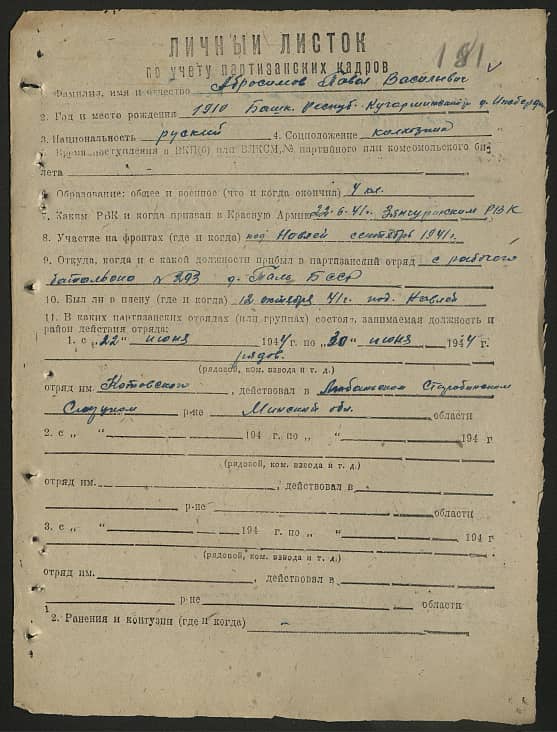 181
ЛИЧНЫЙ ЛИСТОК
по учету партизанских кадров
1 Фамилия, имя и отчество Абросимов Павел Васильевич
2. Год и место рождения 1910 Башк. Респуб. Кугарчинский д.
3. Национальность русский 4. Соцположение колхозник
5. Время поступления в ВКП(б) или ВЛКСМ, № партийного или комсомольского би-
лета
6. Образование: общее и военное (что и когда окончил) 4 кл.
7. Каким РВК и когда призван в Красную Армию 22-6-41г. Зянчуринским РВК
8. Участие на фронтах (где и когда) под Навлей сентябрь 1941г.
9. Откуда, когда и с какой должности прибыл в партизанский отряд с рабочего
батальона № 293 д. БССР
10. Был ли в плену (где и когда) 12 октября 41г. под Навлей
11. В каких партизанских отрядах (или группах) состоял, занимаемая должность и
район действия отряда:
1. с „22" июня 1944 г. по „30" июня 1944 г.
рядов.
(рядовой, ком. взвода и т. д.)
отряд им. Котовского, действовал в Любанском Старобинском
Слуцком р-не Минской обл. области
2. с „ " 194 г. по „ " 194 г
(рядовой, ком. взвода и т. д.)
отряд им. , действовал в
р-не области
3. с „ " 194 г. по „ " 194 г
(рядовой, ком. взвода и т. д.)
отряд им. , действовал в
р-не области
2. Ранения и контузии (где и когда) -